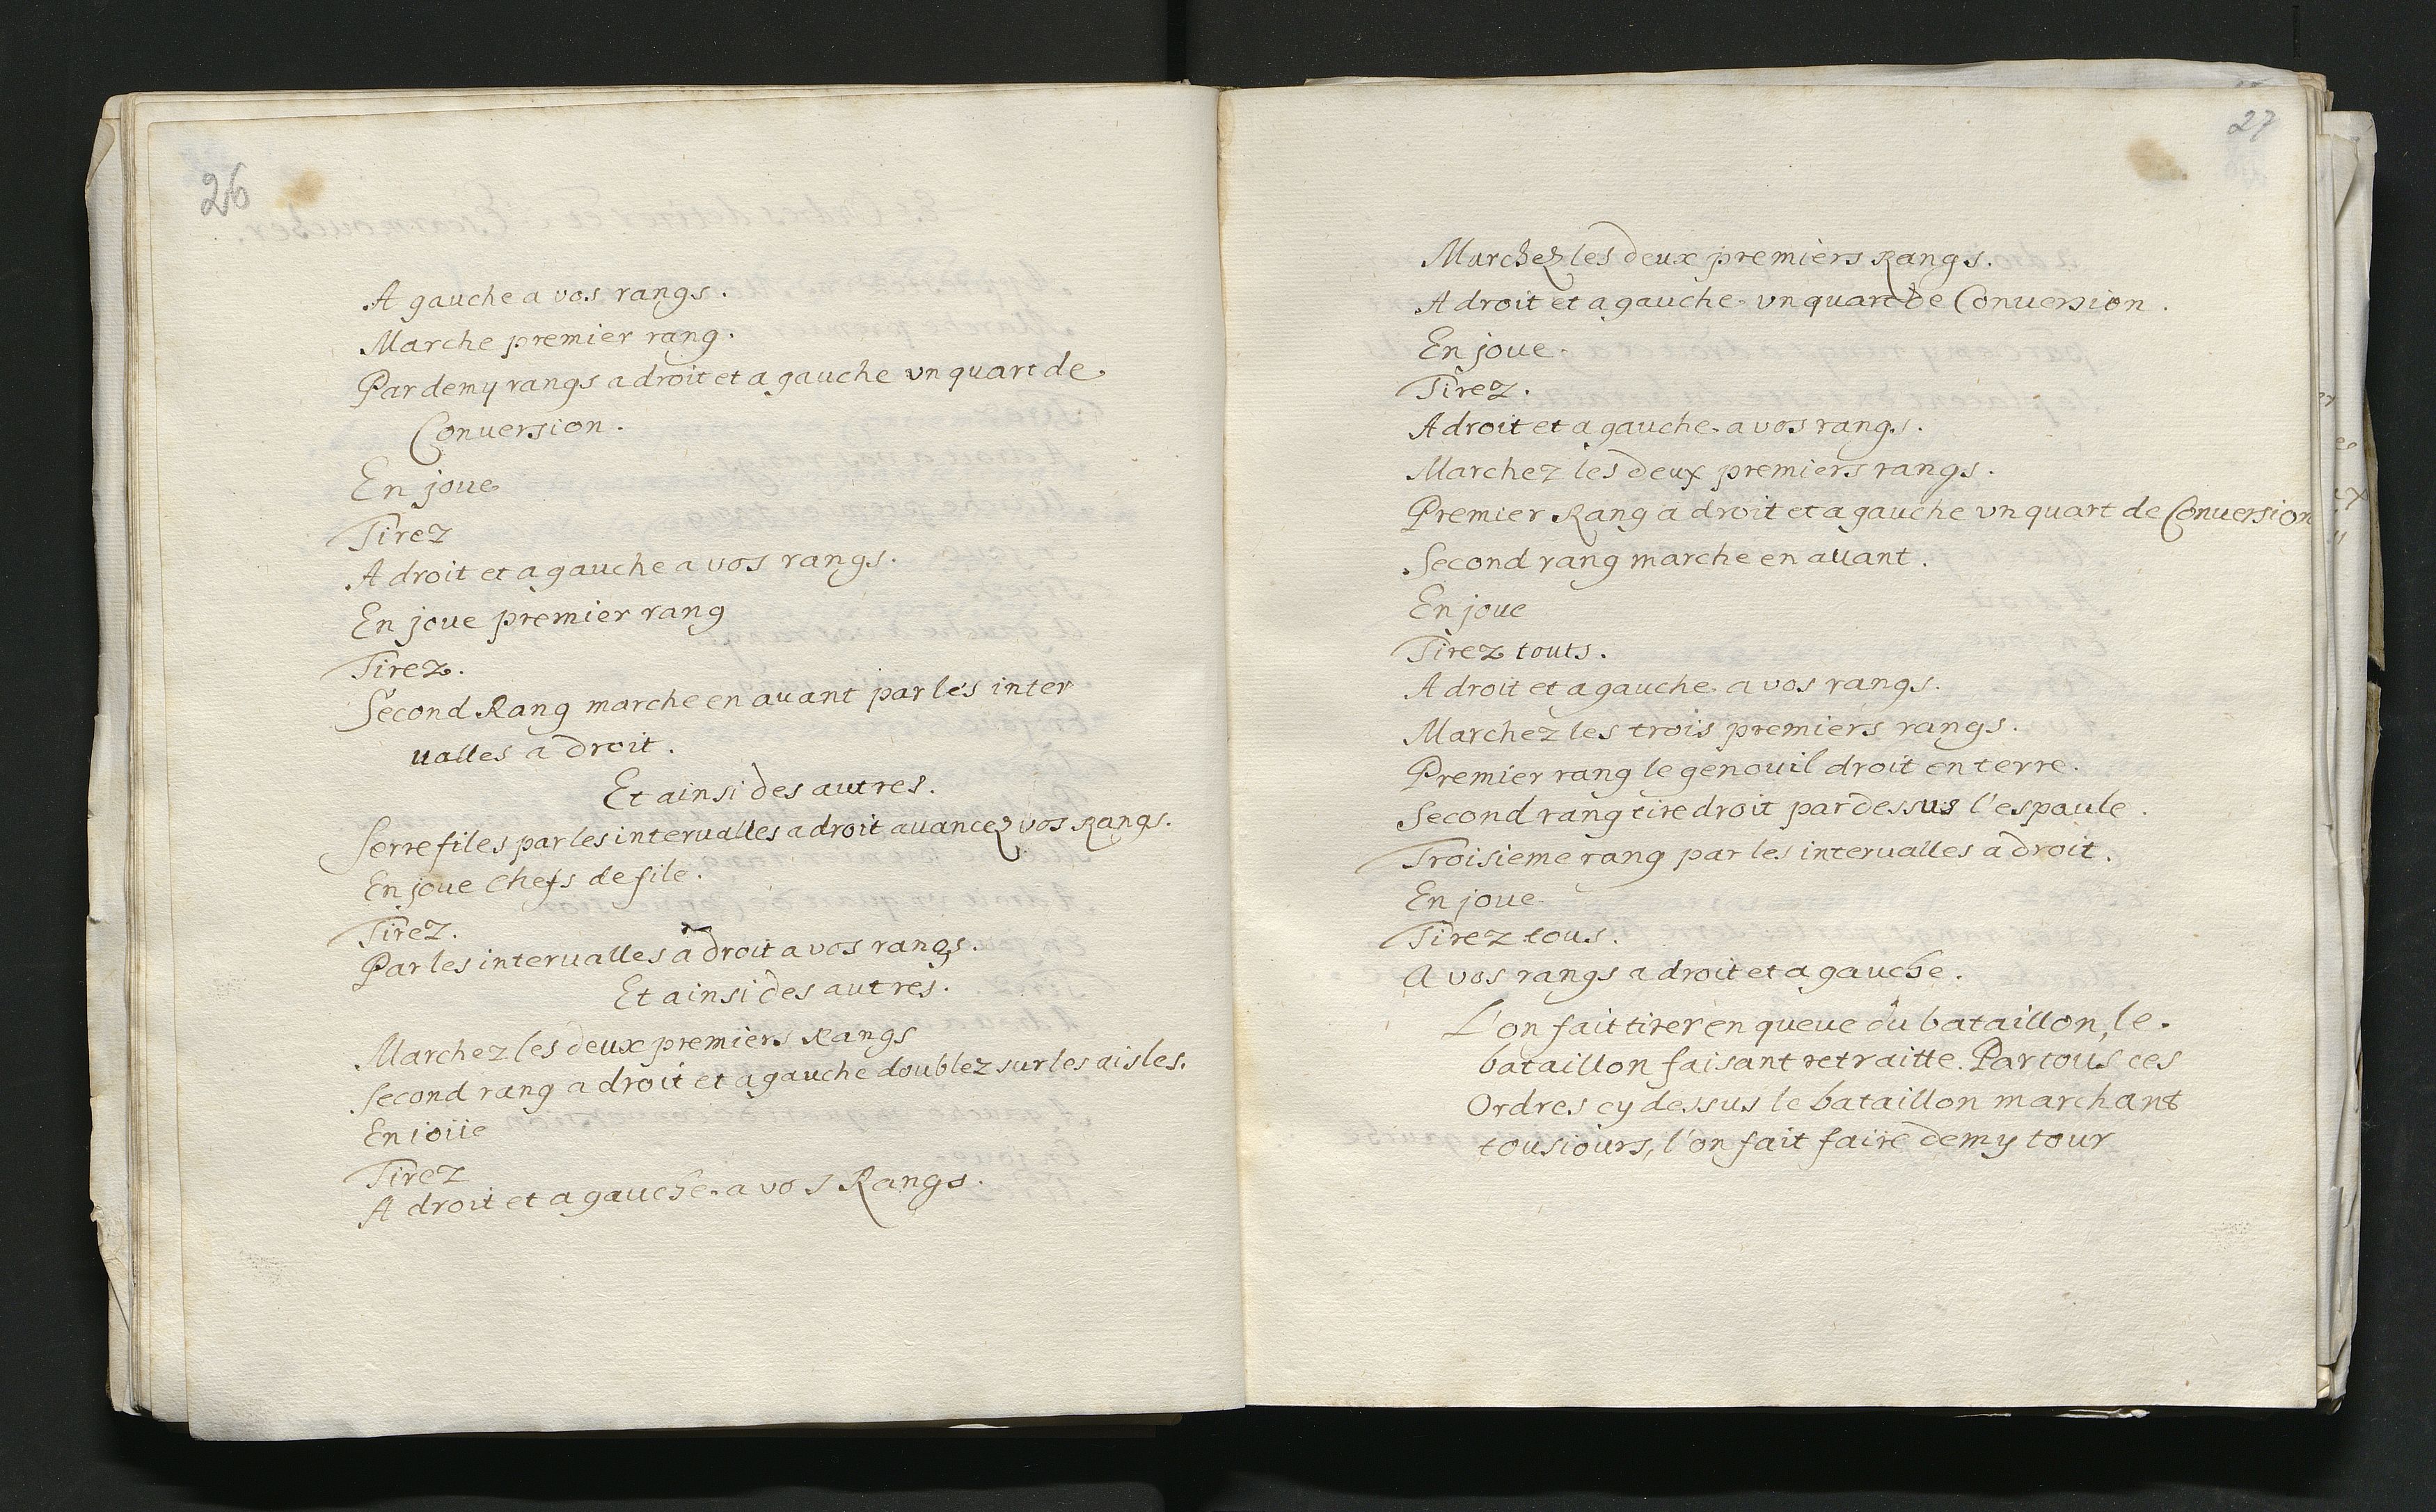 26
A gauche a vos rangs.
Marche premier rang.
Par demy rangs a droit et a gauche vn quart de
Conuersion.
En joue
Tirez
A droit et a gauche a vos rangs.
En joue premier rang
Tirez.
Second Rang marche en auant par les inter
ualles a droit.
Et ainsi des autres.
Serrefiles par les interualles a droit auancez vos Rangs.
En joue Chefs de file.
Tirez.
Par les interualles a droit a vos rangs.
Et ainsi des autres.
Marchez les deux premiers Rangs
Second rang a droit et a gauche doublez sur les aisles.
En ioüe
Tirez
A droit et a gauche a vos Rangs.
27
Marchez les deux premiers Rangs.
A droit et a gauche vn quart de Conuersion.
En joue.
Tirez.
A droit et a gauche a vos rangs.
Marchez les deux premiers rangs.
Premier Rang a droit et a gauche vn quart de Conuersion
Second rang marche en auant.
En joue
Tirez touts.
A droit et a gauche a vos rangs.
Marchez les trois premiers rangs.
Premier rang le genouil droit en terre.
Second rang tire droit par dessus l'espaule.
Troisieme rang par les interualles a droit.
En joue
Tirez tous.
A vos rangs a droit et a gauche.
L'on fait tirer en queue du bataillon, le
bataillon faisant retraitte. Par tous ces
Ordres cy dessus le bataillon marchant
tousiours, l'on fait faire demy tour